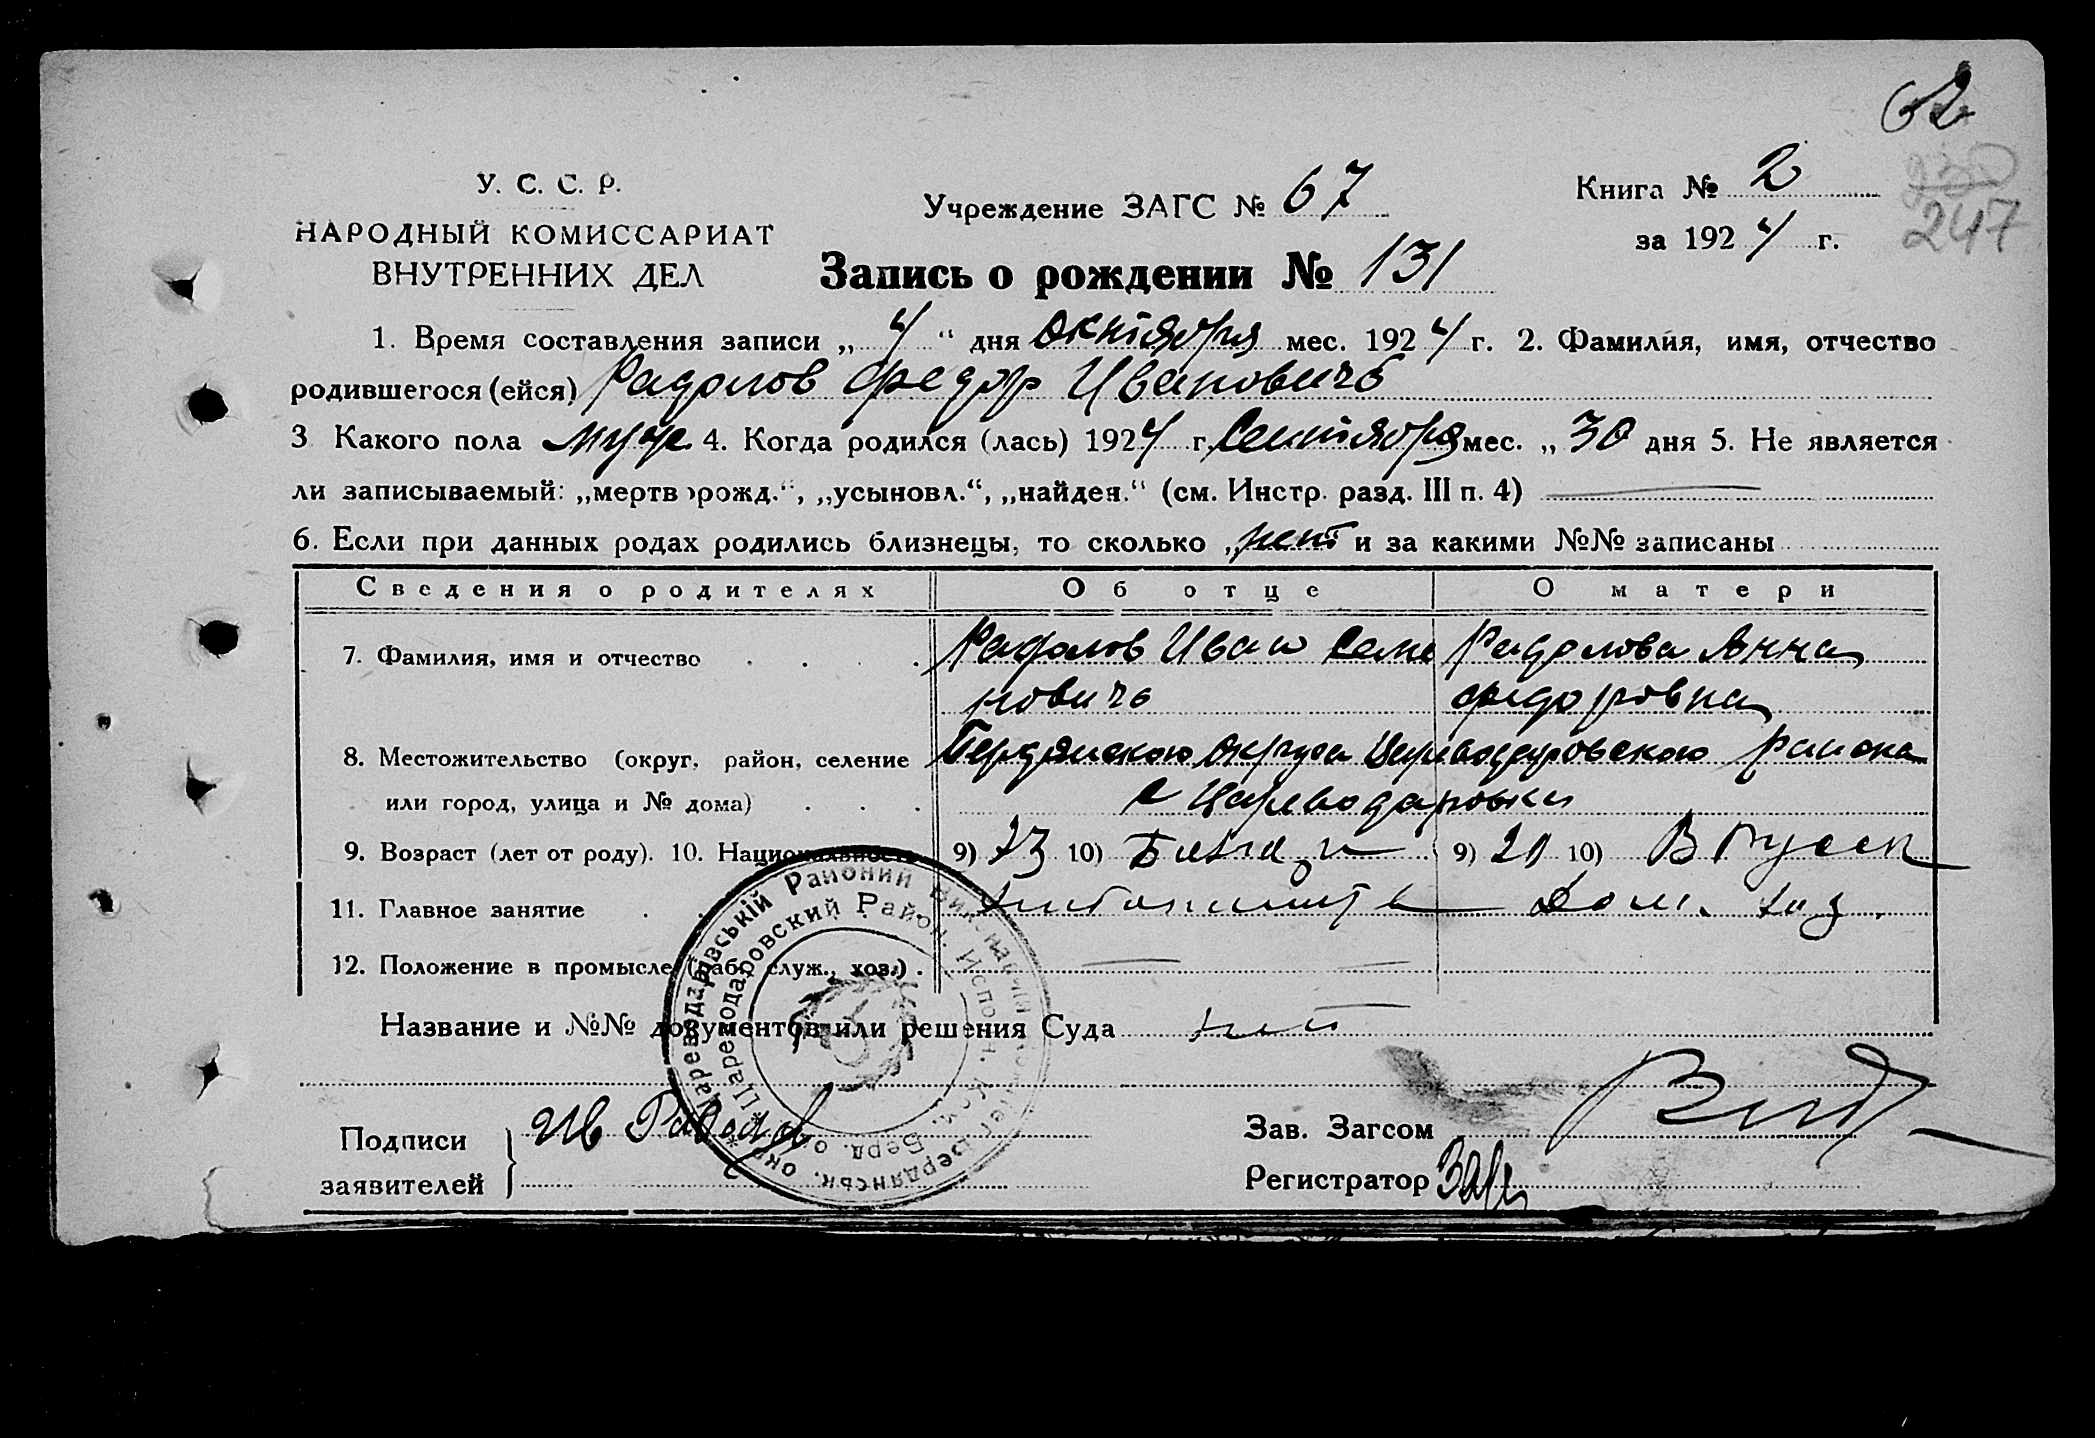 62
У. С. С. Р.
НАРОДНЫЙ КОМИССАРИАТ
ВНУТРЕННИХ ДЕЛ
Учреждение ЗАГС № 67
Книга № 2
за 1924 г.
247
Запись о рождении № 131
1. Время составления записи „ 4 “ дня октября мес. 1924 г. 2. Фамилия, имя, отчество
родившегося (ейся) Радолов Федор Ивановичъ
3 Какого пола муж 4. Когда родился (лась) 1924 г. Сентября мес. „ 30 дня 5. Не является
ли записываемый: „мертворожд.“, „усыновл.“, „найден.“ (см. Инстр. разд. III п. 4)
6. Если при данных родах родились близнецы, то сколько „ нет и за какими №№ записаны
Сведения о родителях Об отце О матери
7. Фамилия, имя и отчество Радолов Иван Семе Радолова Анна
новичъ федоровна
8. Местожительство (округ, район, селение Бердянского округа Цареводаровского района
или город, улица и № дома) с Цареводаровки
9. Возраст (лет от роду). 10. Национальность 9) 23 10) 9) 20 10) Русск
11. Главное занятие Дом. хоз.
12. Положение в промысле (раб., служ., хоз.)
Название и №№ документов или решения Суда нет
Подписи заявителей Ив Радолов
Зав. Загсом
Регистратор
Цареводарівський Районний Виконавчий Комітет Бердянськ. окр.
Цареводаровский Район. Исполн. Ком. Берд. окр.